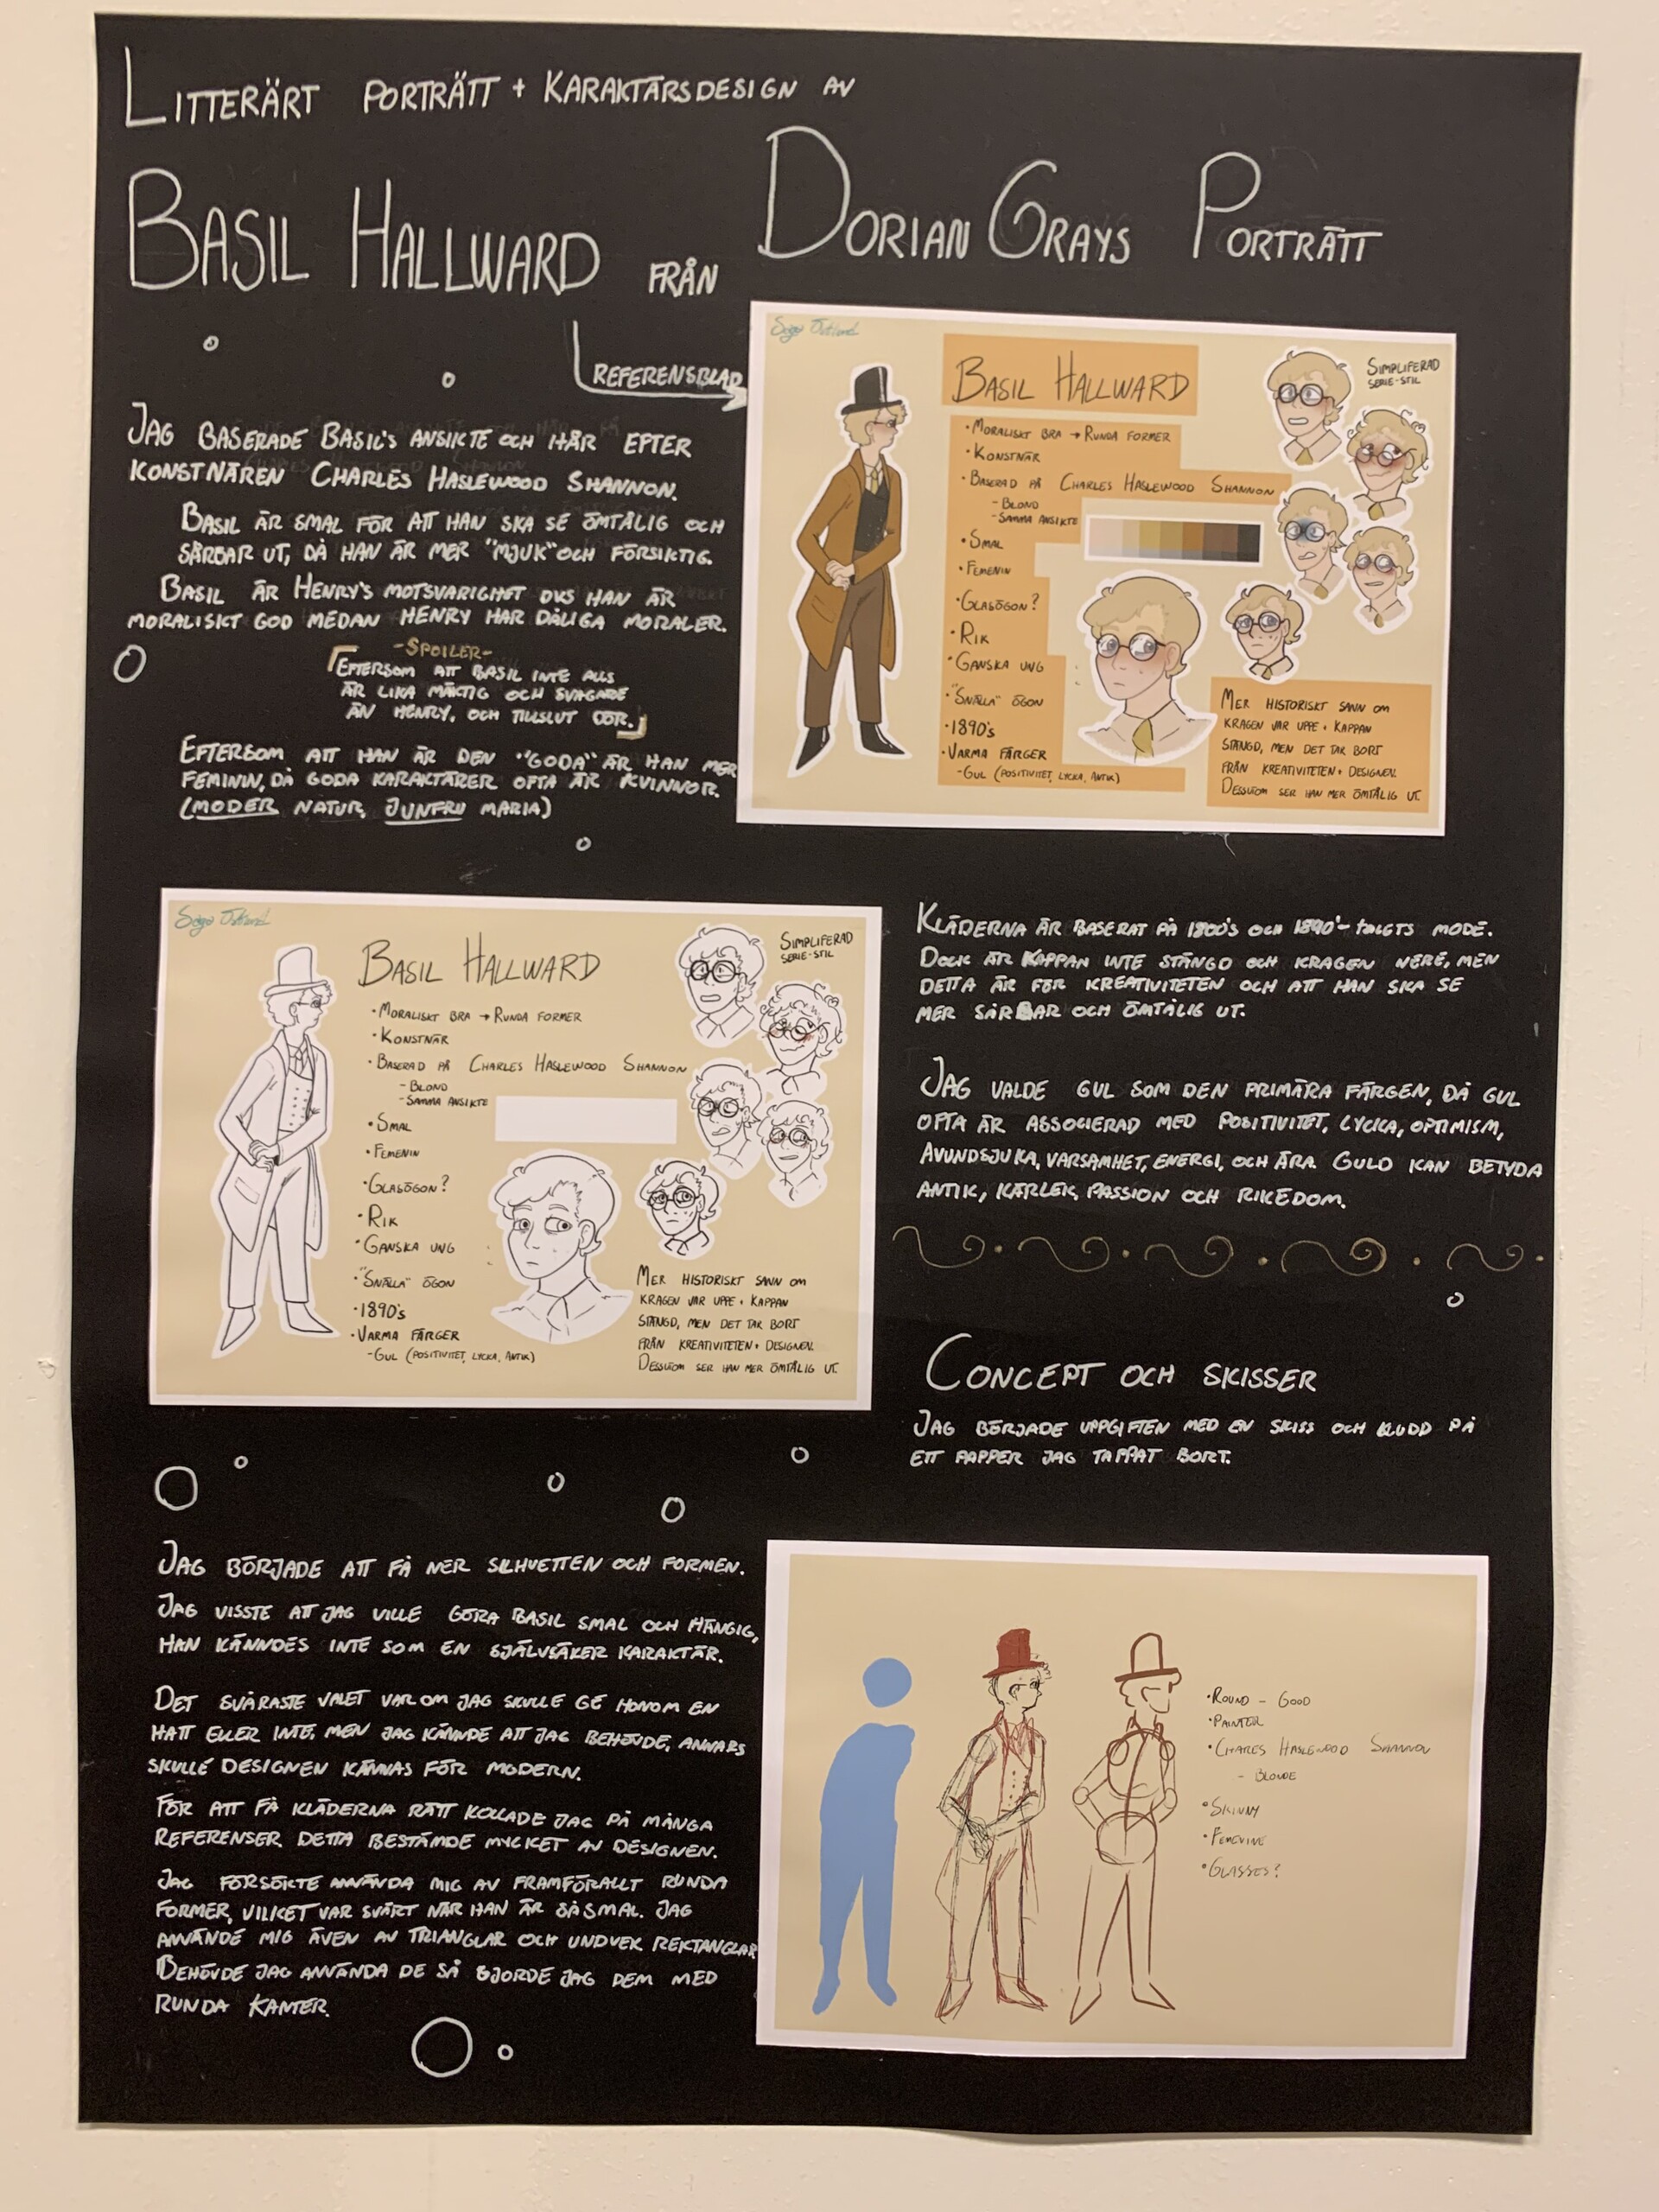 LITTERÄRT PORTRÄTT + KARAKTÄRSDESIGN AV
BASIL HALLWARD FRÅN DORIAN GRAYS PORTRÄTT
REFERENSBLAD
JAG BASERADE BASIL'S ANSIKTE OCH HÅR EFTER
KONSTNÄREN CHARLES HASLEWOOD SHANNON.
BASIL ÄR SMAL FÖR ATT HAN SKA SE ÖMTÅLIG OCH
SÅRBAR UT, DÅ HAN ÄR MER "MJUK" OCH FÖRSIKTIG.
BASIL ÄR HENRY'S MOTSVARIGHET DVS HAN ÄR
MORALISKT GOD MEDAN HENRY HAR DÅLIGA MORALER.
-SPOILER-
EFTERSOM ATT BASIL INTE ALLS
ÄR LIKA MÄKTIG OCH SVAGARE
ÄN HENRY, OCH TILLSLUT DÖR.
EFTERSOM ATT HAN ÄR DEN "GODA" ÄR HAN MER
FEMININ, DÅ GODA KARAKTÄRER OFTA ÄR KVINNOR.
(MODER NATUR, JUNFRU MARIA)
BASIL HALLWARD
• MORALISKT BRA → RUNDA FORMER
• KONSTNÄR
• BASERAD PÅ CHARLES HASLEWOOD SHANNON
- BLOND
- SAMMA ANSIKTE
• SMAL
• FEMENIN
• GLASÖGON?
• RIK
• GANSKA UNG
• "SNÄLLA" ÖGON
• 1890's
• VARMA FÄRGER
- GUL (POSITIVITET, LYCKA, ANTIK)
SIMPLIFERAD
SERIE-STIL
MER HISTORISKT SANN OM
KRAGEN VAR UPPE + KAPPAN
STÄNGD, MEN DET TAR BORT
FRÅN KREATIVITETEN + DESIGNEN.
DESSUTOM SER HAN MER ÖMTÅLIG UT.
BASIL HALLWARD
• MORALISKT BRA → RUNDA FORMER
• KONSTNÄR
• BASERAD PÅ CHARLES HASLEWOOD SHANNON
- BLOND
- SAMMA ANSIKTE
• SMAL
• FEMENIN
• GLASÖGON?
• RIK
• GANSKA UNG
• "SNÄLLA" ÖGON
• 1890's
• VARMA FÄRGER
- GUL (POSITIVITET, LYCKA, ANTIK)
SIMPLIFERAD
SERIE-STIL
MER HISTORISKT SANN OM
KRAGEN VAR UPPE + KAPPAN
STÄNGD, MEN DET TAR BORT
FRÅN KREATIVITETEN + DESIGNEN.
DESSUTOM SER HAN MER ÖMTÅLIG UT.
KLÄDERNA ÄR BASERAT PÅ 1800's OCH 1890'-TALETS MODE.
DOCK ÄR KAPPAN INTE STÄNGD OCH KRAGEN NERE, MEN
DETTA ÄR FÖR KREATIVITETEN OCH ATT HAN SKA SE
MER SÅRBAR OCH ÖMTÅLIG UT.
JAG VALDE GUL SOM DEN PRIMÄRA FÄRGEN, DÅ GUL
OFTA ÄR ASSOCIERAD MED POSITIVITET, LYCKA, OPTIMISM,
AVUNDSJUKA, VARSAMHET, ENERGI, OCH ÄRA. GULD KAN BETYDA
ANTIK, KÄRLEK, PASSION OCH RIKEDOM.
CONCEPT OCH SKISSER
JAG BÖRJADE UPPGIFTEN MED EN SKISS OCH KLUDD PÅ
ETT PAPPER JAG TAPPAT BORT.
JAG BÖRJADE ATT FÅ NER SILHUETTEN OCH FORMEN.
JAG VISSTE ATT JAG VILLE GÖRA BASIL SMAL OCH HÄNGIG,
HAN KÄNNDES INTE SOM EN SJÄLVSÄKER KARAKTÄR.
DET SVÅRASTE VALET VAR OM JAG SKULLE GE HONOM EN
HATT ELLER INTE, MEN JAG KÄNNDE ATT JAG BEHÖVDE, ANNARS
SKULLE DESIGNEN KÄNNAS FÖR MODERN.
FÖR ATT FÅ KLÄDERNA RÄTT KOLLADE JAG PÅ MÅNGA
REFERENSER. DETTA BESTÄMDE MYCKET AV DESIGNEN.
JAG FÖRSÖKTE ANVÄNDA MIG AV FRAMFÖRALLT RUNDA
FORMER, VILKET VAR SVÅRT NÄR HAN ÄR SÅ SMAL. JAG
ANVÄNDE MIG ÄVEN AV TRIANGLAR OCH UNDVEK REKTANGLAR.
BEHÖVDE JAG ANVÄNDA DE SÅ GJORDE JAG DEM MED
RUNDA KANTER.
• ROUND - GOOD
• PAINTER
• CHARES HASLEWOOD SHANNON
- BLONDE
• SKINNY
• FEMENINE
• GLASSES?